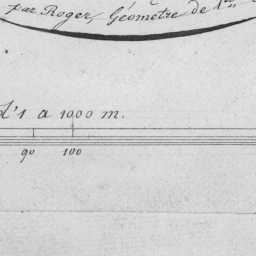 par Roger, Géometre de 1re
d'1 a 1000 m.
90 100